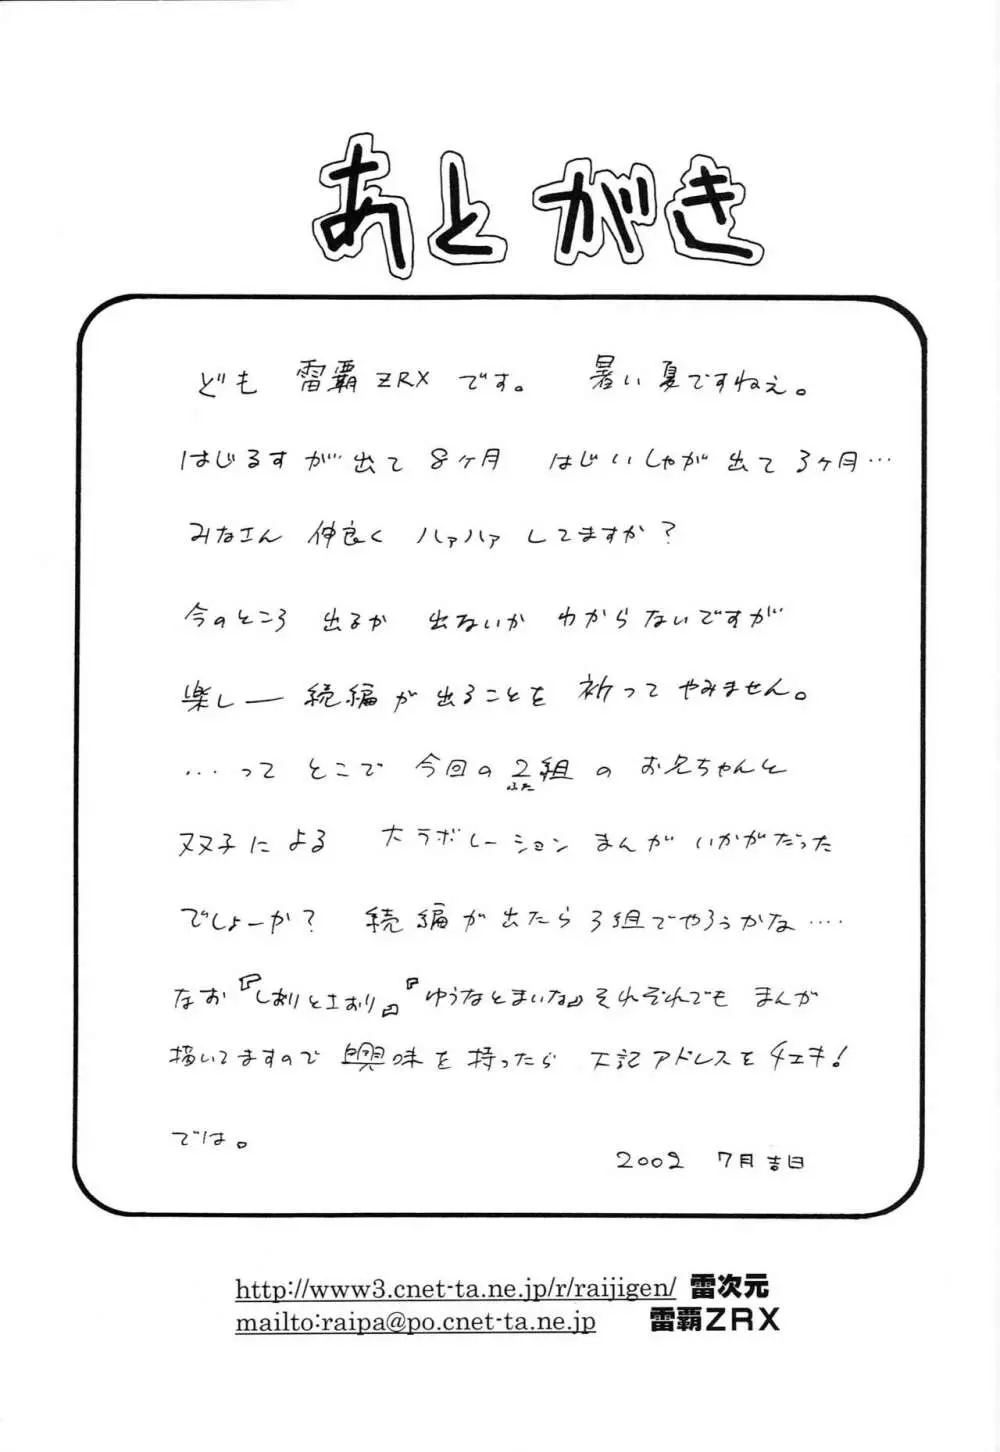 あとがき
ども 雷覇ZRX です。 暑い夏ですねえ。
はじるすが出て 8ヶ月 はじいしゃが出て 3ヶ月…
みなさん 仲良く ハァハァ してますか?
今のところ 出るか 出ないか わからないですが
楽しー 続編が出ることを 祈って やみません。
…って とこで 今回の 2組 の お兄ちゃんと
ふた
双子による 大ラボレーション まんが いかがだった
でしょーか? 続編が出たら 3組でやろうかな‥‥
なお『しおりとえおり』『ゆうなとまいな』それぞれでも まんが
描いてますので 興味を 持ったら 下記アドレスを チェキ!
では。
2002 7月吉日
http://www3.cnet-ta.ne.jp/r/raijigen/ 雷次元
mailto:raipa@po.cnet-ta.ne.jp 雷覇ZRX